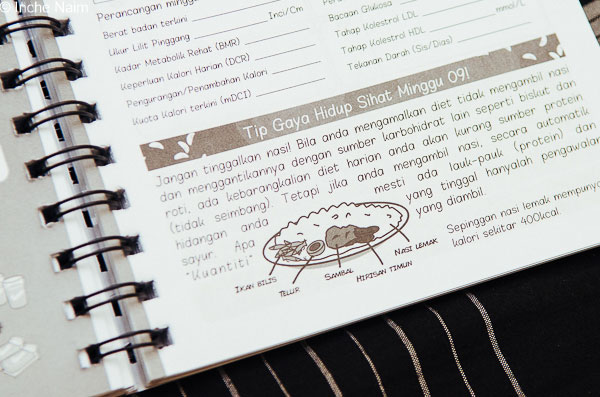 © Inche Naim
Perancangan minggu
Berat badan terkini Inci/Cm
Ukur Lilit Pinggang
Kadar Metabolik Rehat (BMR)
Keperluan Kalori Harian (DCR)
Pengurangan/Penambahan Kalori
Kuota Kalori terkini (mDCI)
Bacaan Gluosa
Tahap Kolestrol LDL
Tahap Kolestrol HDL mmol/L
Tekanan Darah (Sis/Dias)
Tip Gaya Hidup Sihat Minggu 09!
Jangan tinggalkan nasi! Bila anda mengamalkan diet tidak mengambil nasi
dan menggantikannya dengan sumber karbohidrat lain seperti biskut dan
roti, ada kebarangkalian diet harian anda akan kurang sumber protein
(tidak seimbang). Tetapi jika anda mengambil nasi, secara automatik
hidangan anda mesti ada lauk-pauk (protein) dan
sayur. Apa yang tinggal hanyalah pengawalan
"Kuantiti" yang diambil.
Sepinggan nasi lemak mempunyai
kalori sekitar 400kcal.
IKAN BILIS
TELUR
SAMBAL
HIRISAN TIMUN
NASI LEMAK